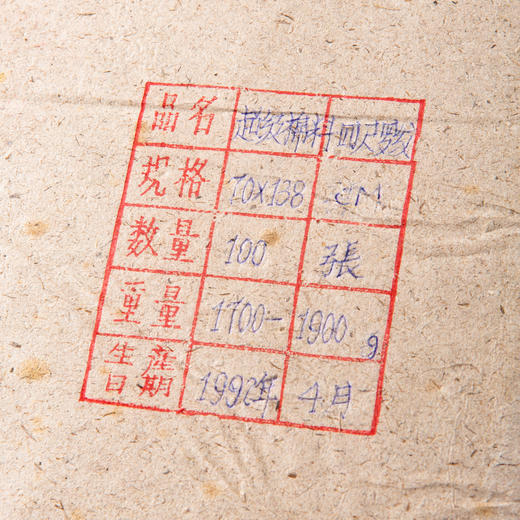 品名 超级棉料四尺
规格 70×138 CM
数量 100 張
重量 1700— 1900 g
生產日期 199年 4月